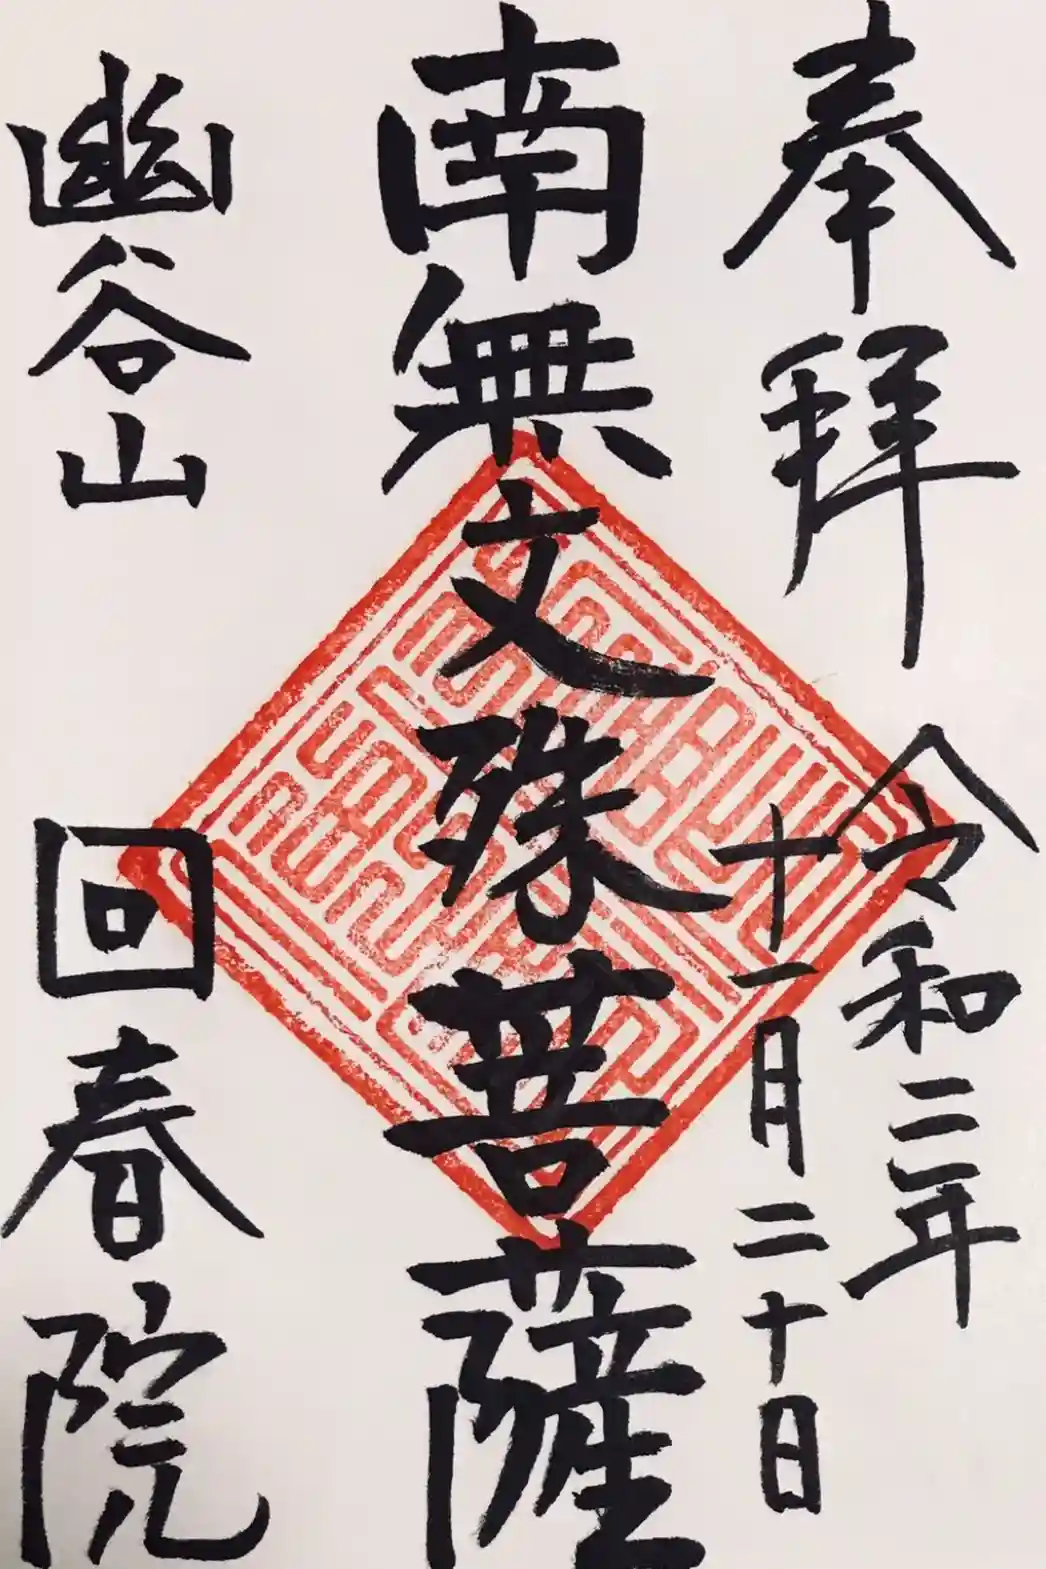 奉拝　令和三年
十一月二十日
南無文殊菩薩
幽谷山　回春院